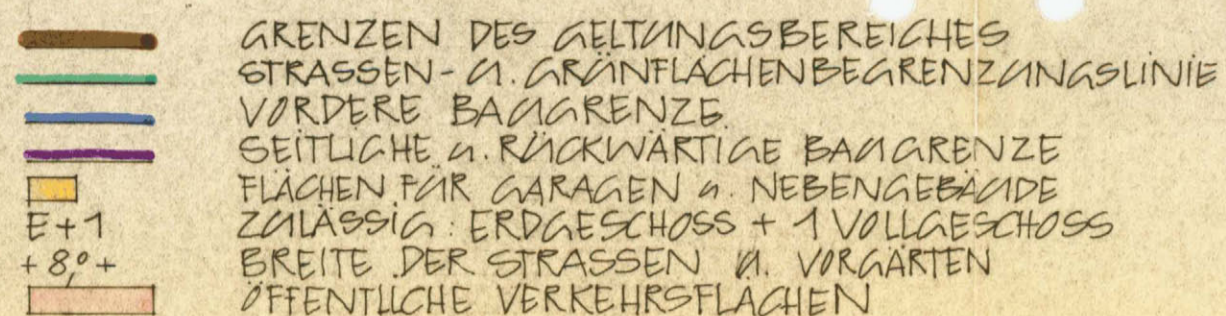 GRENZEN DES GELTUNGSBEREICHES
STRASSEN- U. GRÜNFLÄCHENBEGRENZUNGSLINIE
VORDERE BAUGRENZE
SEITLICHE u. RÜCKWÄRTIGE BAUGRENZE
FLÄCHEN FÜR GARAGEN u. NEBENGEBÄUDE
E+1 ZULÄSSIG: ERDGESCHOSS + 1 VOLLGESCHOSS
+ 8,0 + BREITE DER STRASSEN U. VORGÄRTEN
ÖFFENTLICHE VERKEHRSFLÄCHEN